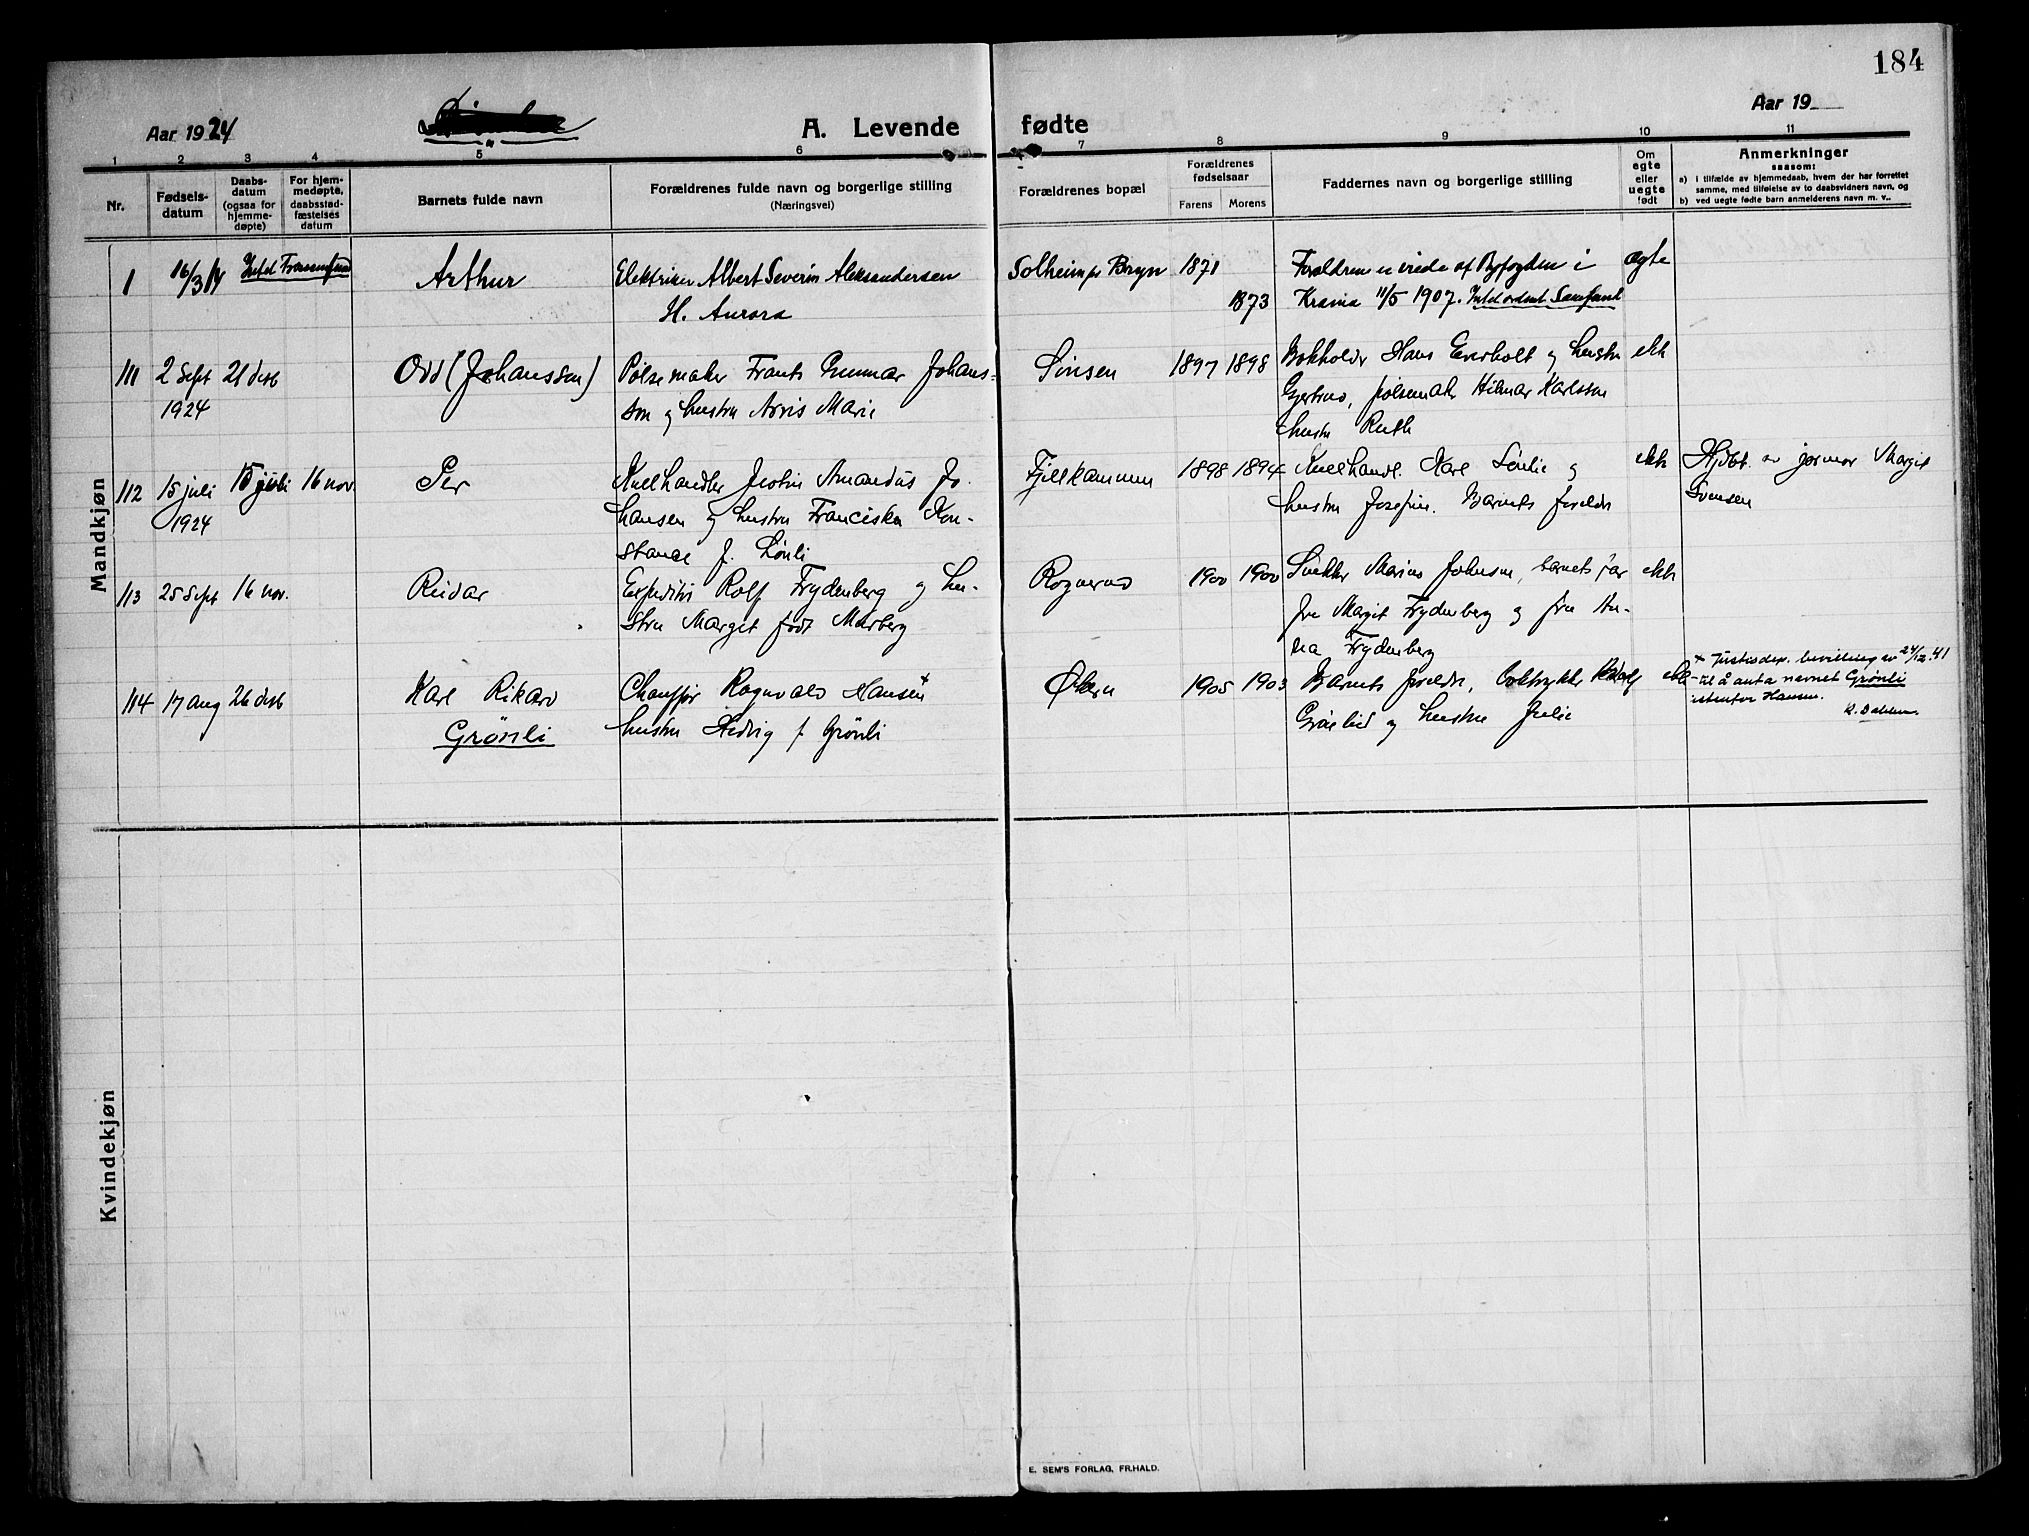 184
Aar 1924
A. Levende fødte
Aar 19
1 2 3 4 5 6 7 8 9 10 11
Nr.
Fødsels-
datum
Daabs-
datum
(ogsaa for
hjemme-
døpte)
For hjem-
medøpte,
daabsstad-
fæstelses
datum
Barnets fulde navn
Forældrenes fulde navn og borgerlige stilling
(Næringsvei)
Forældrenes bopæl
Forældrenes
fødselsaar
Farens Morens
Faddernes navn og borgerlige stilling
Om
egte
eller
uegte
født
Anmerkninger
saasom:
a) i tilfælde av hjemmedaab, hvem der har forrettet
samme, med tilføielse av to daabsvidners navn, og
b) ved uegte fødte barn anmelderens navn m. v..
Mandkjøn
1 16/3 14
Arthur
Elektriker Albert Severin Aleksandersen
H. Aurora
Solheim pr Bryn
1871
1873
Forældrene er viede af Byfogden i
Krania 11/5 1907.
ægte
111 2 sept 21 desb
1924
Odd (Johansson)
Pølsemaker Frants Gunnar Johans-
son og hustru Arvis Marie
Sinsen
1897 1898
Bokholder Hans Everholt og hustru
Gjertrud, pølsemaker Hilmar Karlsson
hustru Ruth
ekte
112 15 juli 15 juli 16 nov.
1924
Per
Kulhandler Justin Amandus Jo-
hansen og hustru Franciska Kon-
stanse f. Lønli
Fjellhammen
1898 1894
Kulhandl. Karl Lønlie og
hustru Josefine. Barnets foreldre
ekte
Hjdbt. av jormor Margit
Svensen
113 25 sept 16 nov.
Reidar
Expeditør Rolf Frydenberg og hu-
stru Margit født Marberg
Rognerud
1900 1900
Snekker Marius Johnsen, barnets far
fru Margit Frydenberg og fru An-
na Frydenberg
ekte
114 17 aug 26 desb
Karl Rikard
Grønli
Chauffør Ragnvald Hansen +
hustru Hedvig f Grønli
Økern
1905 1903
Barnets foreldre, boktrykker Rudolf
og hustru Julie
ekte
+ Justisdep. bevilling av 24/12.41
til å anta navnet Grønli
istenfor Hansen.
Kvindekjøn
E. SEM'S FORLAG, FR.HALD.